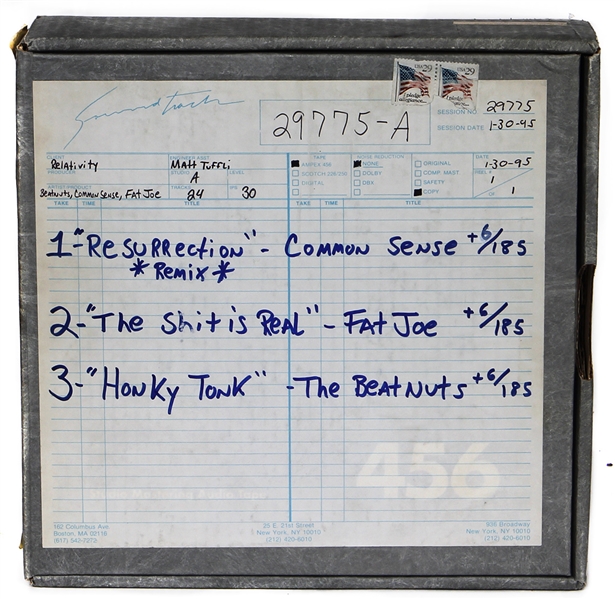 Soundtrack
29775-A
SESSION NO. 29775
SESSION DATE 1-30-95
CLIENT Relativity
ENGINEER ASST. Matt Tuffli
PRODUCER
STUDIO A
LEVEL
ARTIST/PRODUCT Beatnuts, Common Sense, Fat Joe
TRACKS 24
IPS 30
TAPE
AMPEX 456
SCOTCH 226/250
DIGITAL
NOISE REDUCTION
NONE
DOLBY
DBX
ORIGINAL
COMP. MAST.
SAFETY
COPY
DATE 1-30-95
REEL # 1
OF 1
TAKE TIME TITLE TAKE TIME TITLE
1-"Resurrection" - Common Sense +6/185
*Remix*
2-"The Shit is Real" - Fat Joe +6/185
3-"Honky Tonk" - The Beatnuts +6/185
456
162 Columbus Ave.
Boston, MA 02116
25 E. 21st Street
New York, NY 10010
(212) 420-6010
936 Broadway
New York, NY 10010
(212) 420-6010